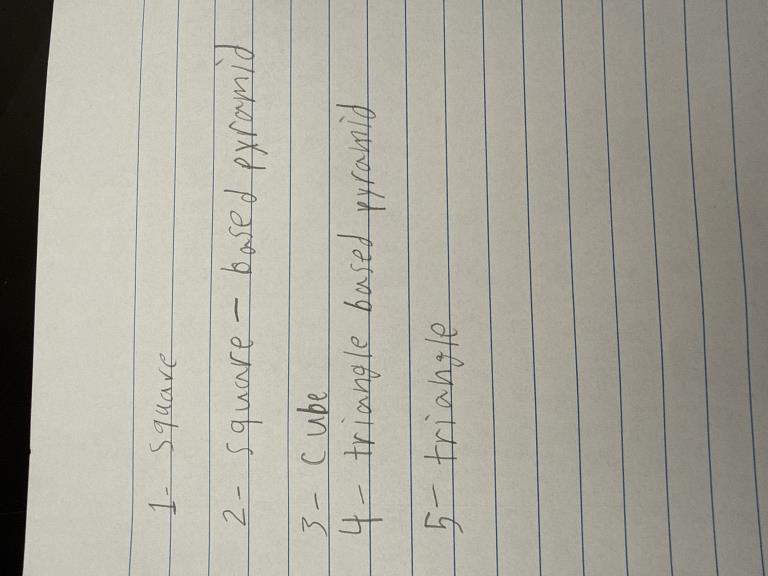 1- square
2- square - based pyramid
3- cube
4- triangle based pyramid
5- triangle